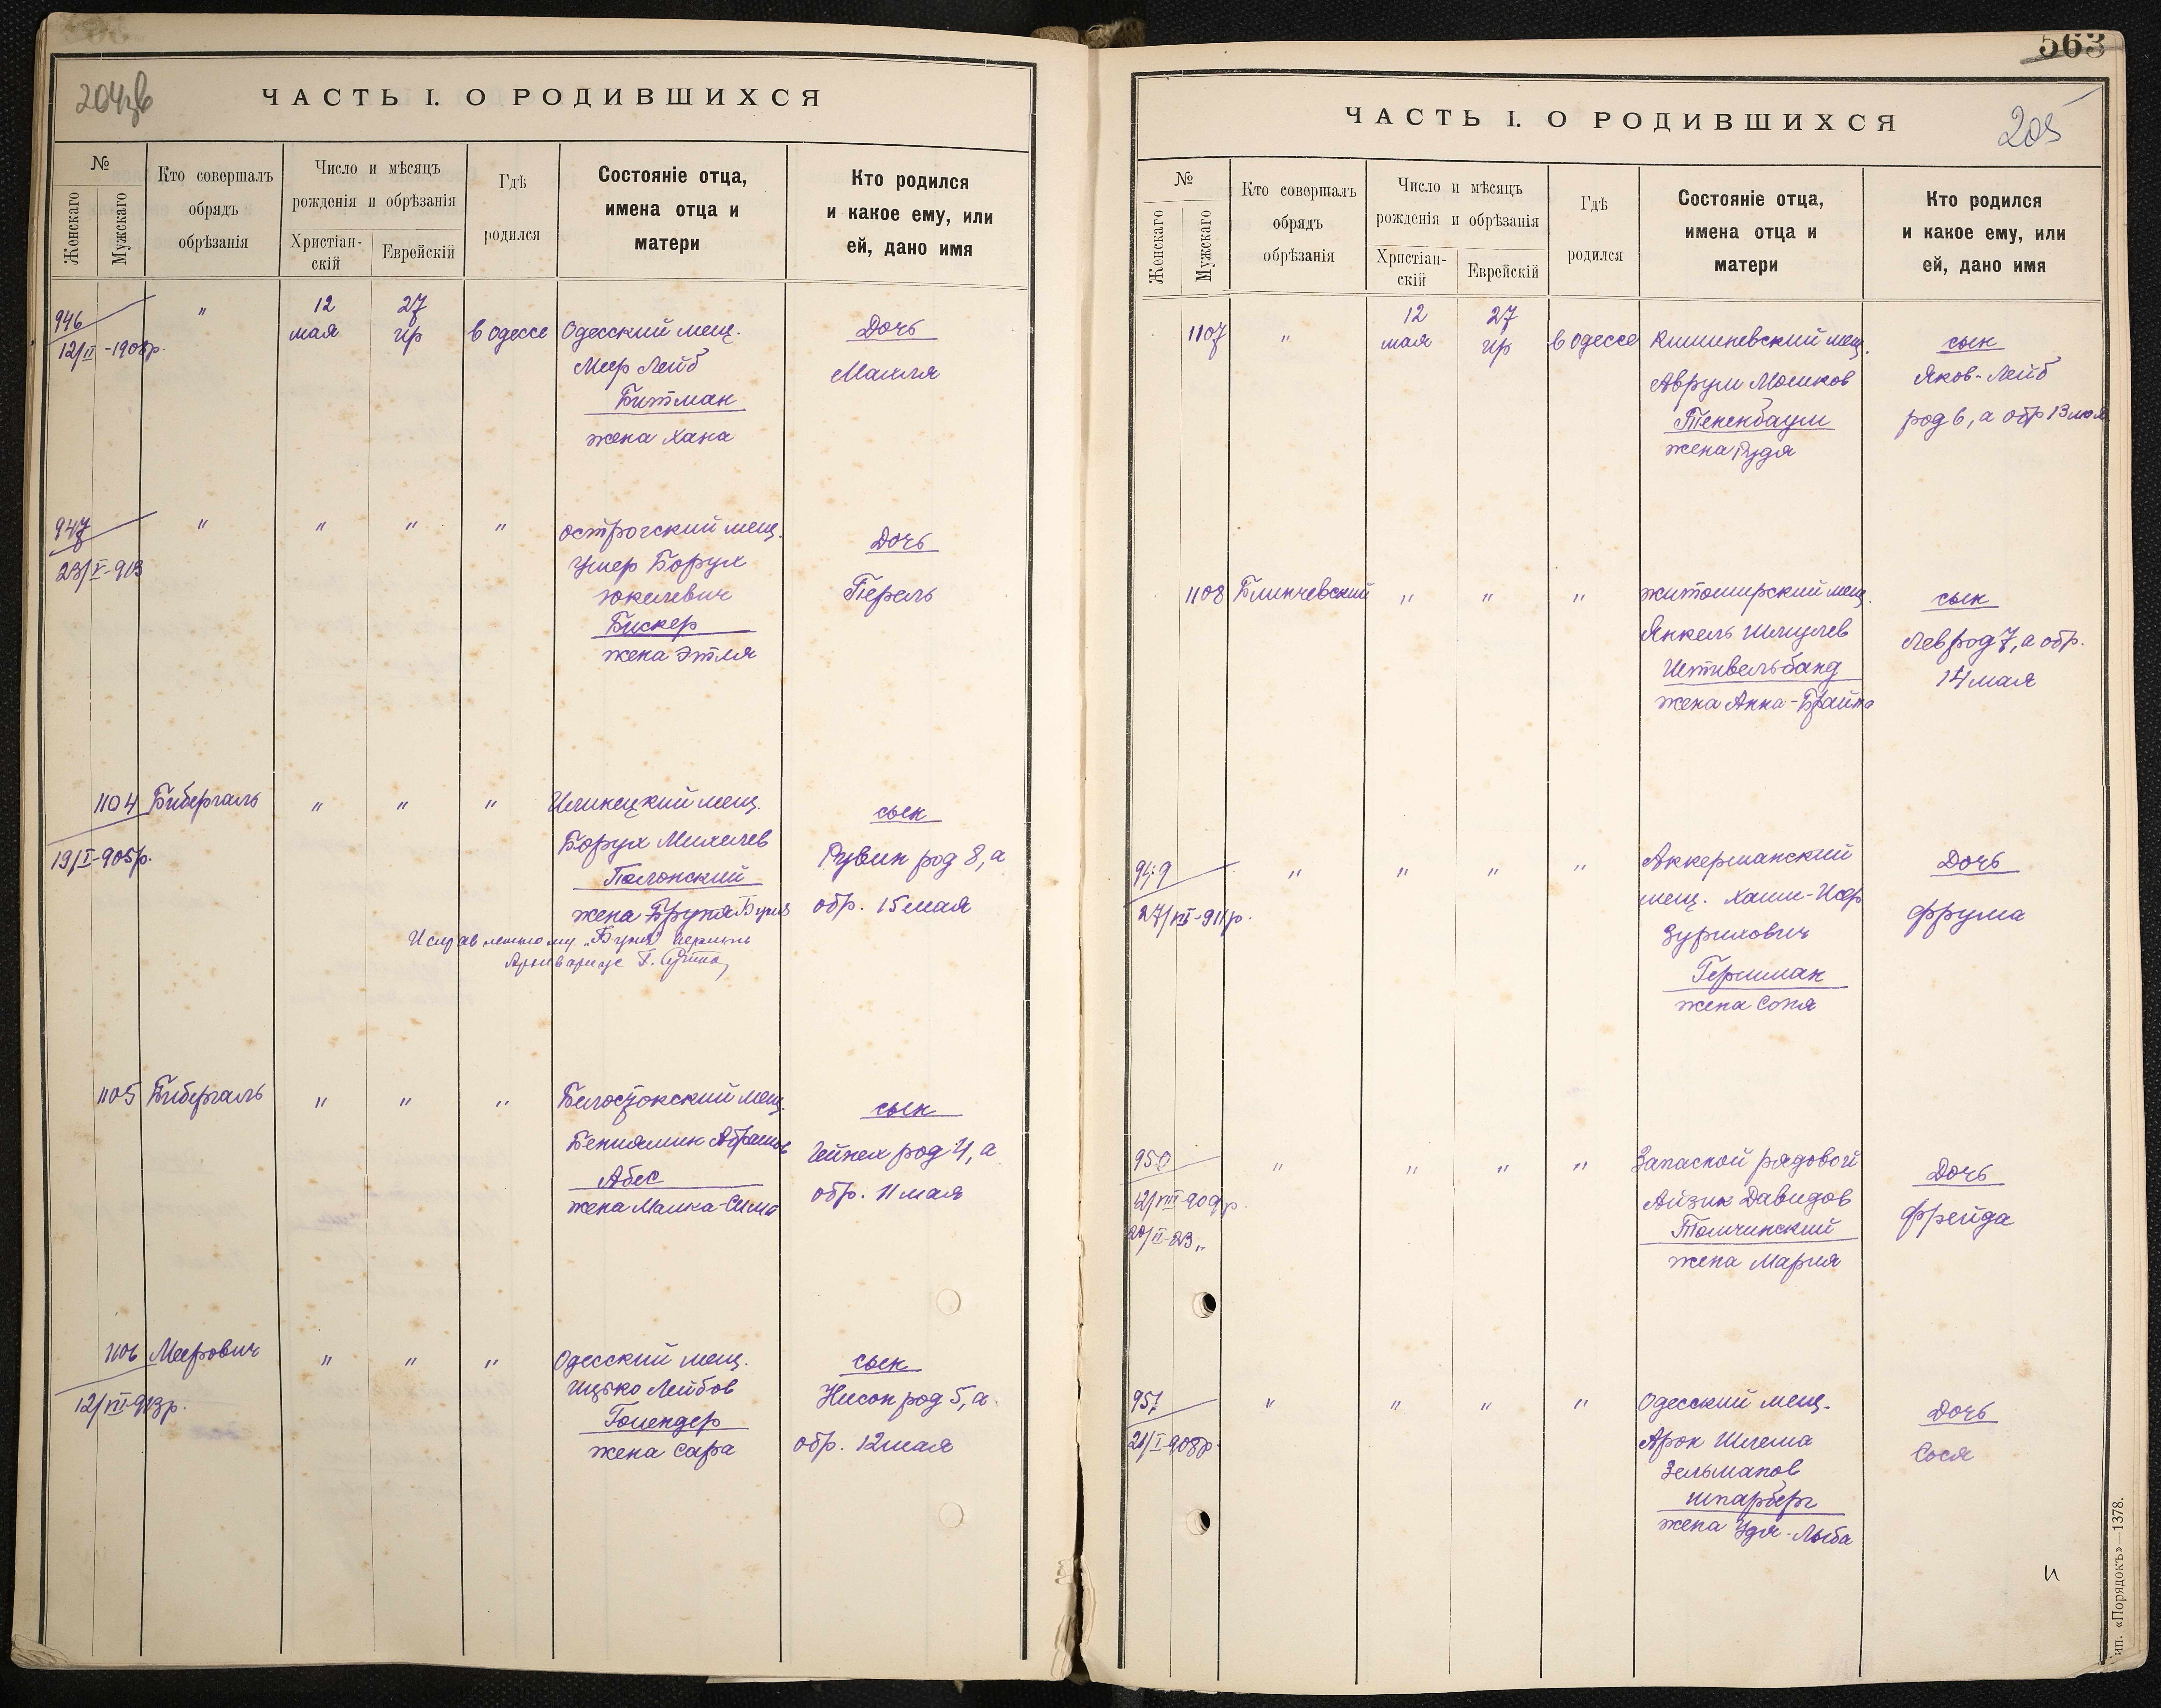 ЧАСТЬ I. О РОДИВШИХСЯ
№
Женскаго
Мужскаго
Кто совершалъ
обрядъ
обрѣзанія
Число и мѣсяцъ
рожденія и обрѣзанія
Христіан-
скій
Еврейскій
Гдѣ
родился
Состояніе отца,
имена отца и
матери
Кто родился
и какое ему, или
ей, дано имя
946
12/II-1908р.
"
12
мая
27
ир
в Одессе
Одесский мещ.
Меер Лейб
Битман
жена Хана
Дочь
Махля
947
23/V-913
"
"
"
"
Острогский мещ.
Ушер Борух
Юкелевич
Бискер
жена Этля
Дочь
Перель
1104
19/I-905р.
Бибергаль
"
"
"
Илинецкий мещ.
Борух Михелев
Полонский
жена Бруня Буня
Исправленному „Буня" верить
Архивариус
сын
Рувин род 8, а
обр. 15 мая
1105
Бибергаль
"
"
"
Белостокский мещ.
Бениамин Абрамов
Абес
жена Малка-Сима
сын
Гейнех род 4, а
обр. 11 мая
1106
12/VII-913р.
Меерович
"
"
"
Одесский мещ.
Ицько Лейбов
Голендер
жена Сара
сын
Нисон род 5, а
обр. 12 мая
563
ЧАСТЬ I. О РОДИВШИХСЯ
205
№
Женскаго
Мужскаго
Кто совершалъ
обрядъ
обрѣзанія
Число и мѣсяцъ
рожденія и обрѣзанія
Христіан-
скій
Еврейскій
Гдѣ
родился
Состояніе отца,
имена отца и
матери
Кто родился
и какое ему, или
ей, дано имя
1107
"
12
мая
27
ир
в Одессе
Кишиневский мещ.
Аврум Мошков
Тененбаум
жена Рудя
сын
Яков-Лейб
род 6, а обр 13 мая
1108
Блинчевский
"
"
"
житомирский мещ.
Янкель Шмулев
Штивельбанд
жена Анна-Брайна
сын
Лев род 7, а обр.
14 мая
949
27/VII-911р.
"
"
"
"
Аккерманский
мещ. Хаим-Иср
Зурихович
Гершман
жена Соня
Дочь
Фрума
950
12/VIII-909р.
20/II-23"
"
"
"
"
Запасной рядовой
Айзик Давидов
Толчинский
жена Мария
Дочь
Фрейда
957
21/I-908р.
"
"
"
"
Одесский мещ.
Арон Шлема
Зельманов
Шпарберг
жена Удя-Лыба
Дочь
Сося
ип. «Порядокъ»—1378.